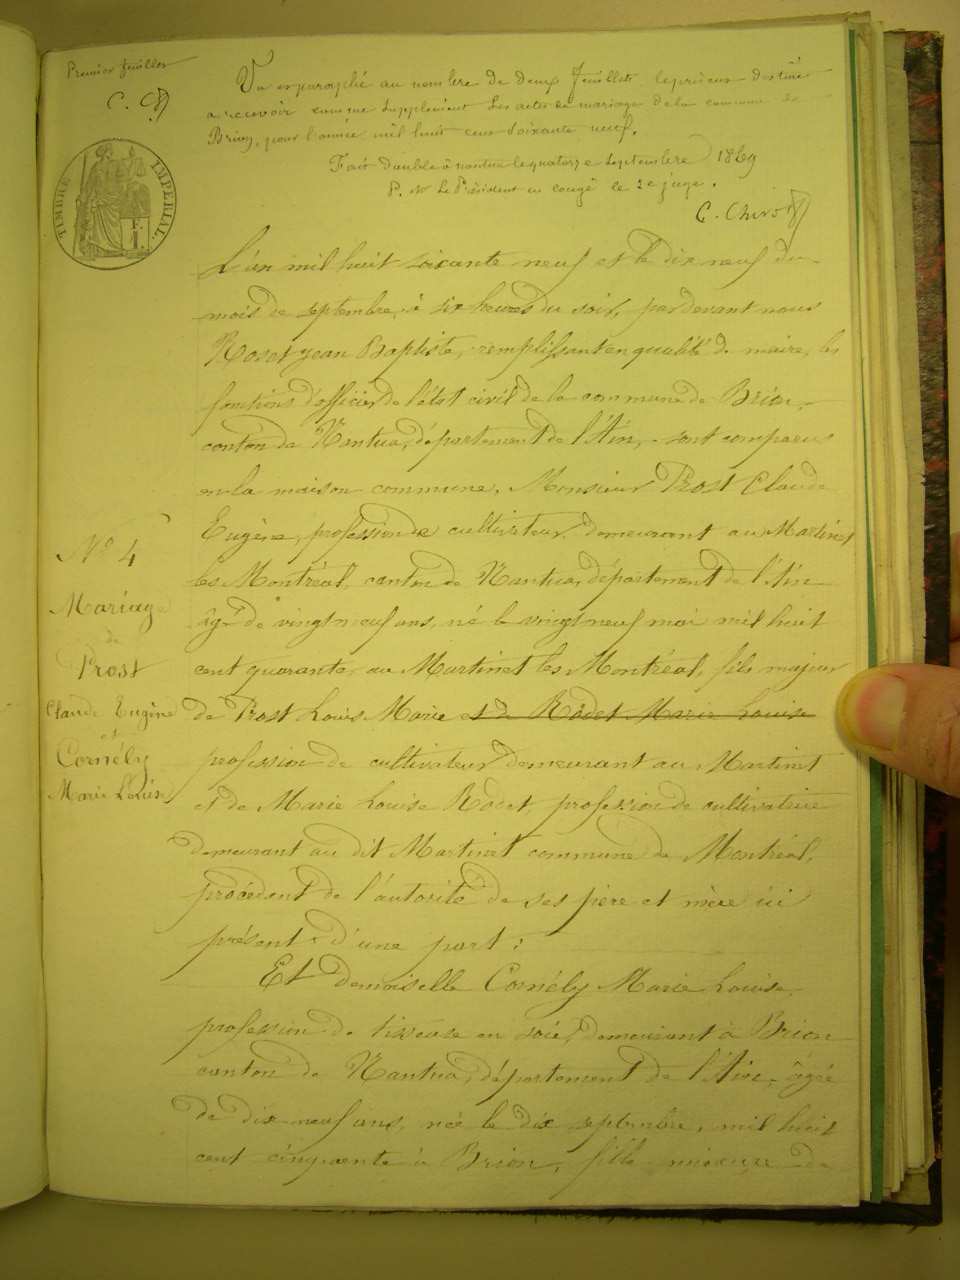 Premier feuillet
C. C
Vu et paraphé au nombre de deux feuillets le présent destiné
a recevoir comme supplément les actes de mariage de la commune de
Brion, pour l'année mil huit cent soixante neuf.
Fait double à nantua le quatorze septembre 1869
P. Mr Le Président en congé le 2e juge.
C. Chivo
TIMBRE IMPERIAL
F.
1.
L'an mil huit soixante neuf et le dix neuf du
mois de septembre, à six heures du soir, par devant nous
Roset Jean Baptiste, remplissant en qualité de maire, les
fonctions d'officier de l'état civil de la commune de Brion,
canton de Nantua, département de l'Ain, sont comparus
en la maison commune, Monsieur Prost Claude
Eugène, profession de cultivateur demeurant au Martinet
les Montréal, canton de Nantua, département de l'Ain
âgé de vingt neuf ans, né le vingt neuf mai mil huit
cent quarante, au Martinet les Montréal, fils majeur
de Prost Louis Marie et de Rodet Marie Louise
profession de cultivateur demeurant au Martinet
et de Marie Louise Rodet, profession de cultivatrice
demeurant au dit Martinet commune de Montréal,
procédant de l'autorité de ses père et mère ici
présent, d'une part ;
Et demoiselle Cornély Marie Louise,
profession de tisseuse en soie, demeurant à Brion
canton de Nantua, département de l'Ain, âgée
de dix neuf ans, née le dix septembre, mil huit
cent cinquante à Brion, fille mineure de
No 4
Mariage
de
Prost
Claude Eugène
et
Cornély
Marie Louise